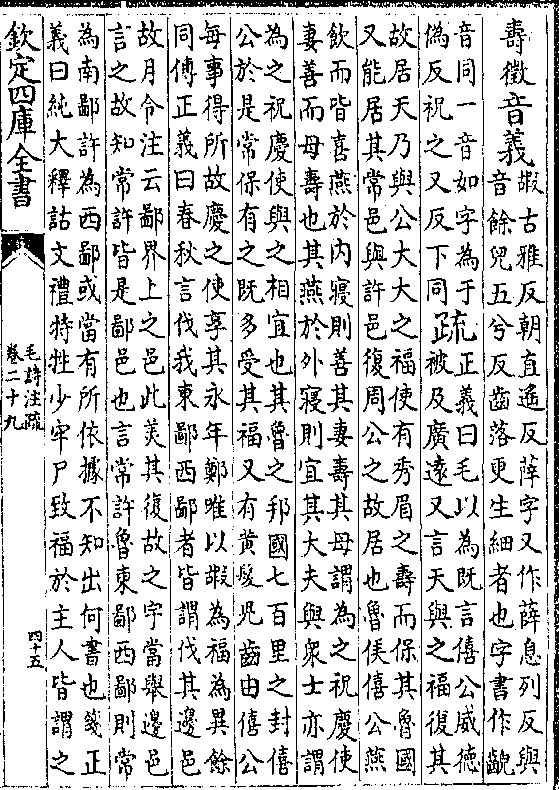 壽徵音義
嘏古雅反朝直遥反薛字又作薛息列反與
音餘兒五兮反齒落更生細者也字書作齯
音同一音如字為于
偽反祝之又反下同
疏
正義曰毛以為既言僖公威徳
被及廣逺又言天與之福復其
故居天乃與公大大之福使有秀眉之壽而保其魯國
又能居其常邑與許邑復周公之故居也魯侯僖公燕
飲而皆喜燕於内寢則善其妻壽其母謂為之祝慶使
妻善而母壽也其燕於外寢則宜其大夫與衆士亦謂
為之祝慶使與之相宜也其魯之邦國七百里之封僖
公於是常保有之既多受其福又有黄髮兒齒由僖公
每事得所故慶之使享其永年鄭唯以嘏為福為異餘
同傳正義曰春秋言伐我東鄙西鄙者皆謂伐其邊邑
故月令注云鄙界上之邑此美其復故之字當舉邊邑
言之故知常許皆是鄙邑也言常許魯東鄙西鄙則常
為南鄙許為西鄙或當有所依據不知出何書也箋正
義曰純大釋詁文禮特牲少牢尸致福於主人皆謂之
欽定四庫全書
毛詩注疏
卷二十九
四十五